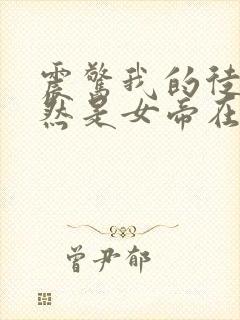 震惊我的徒
然是女帝在
曾尹郁